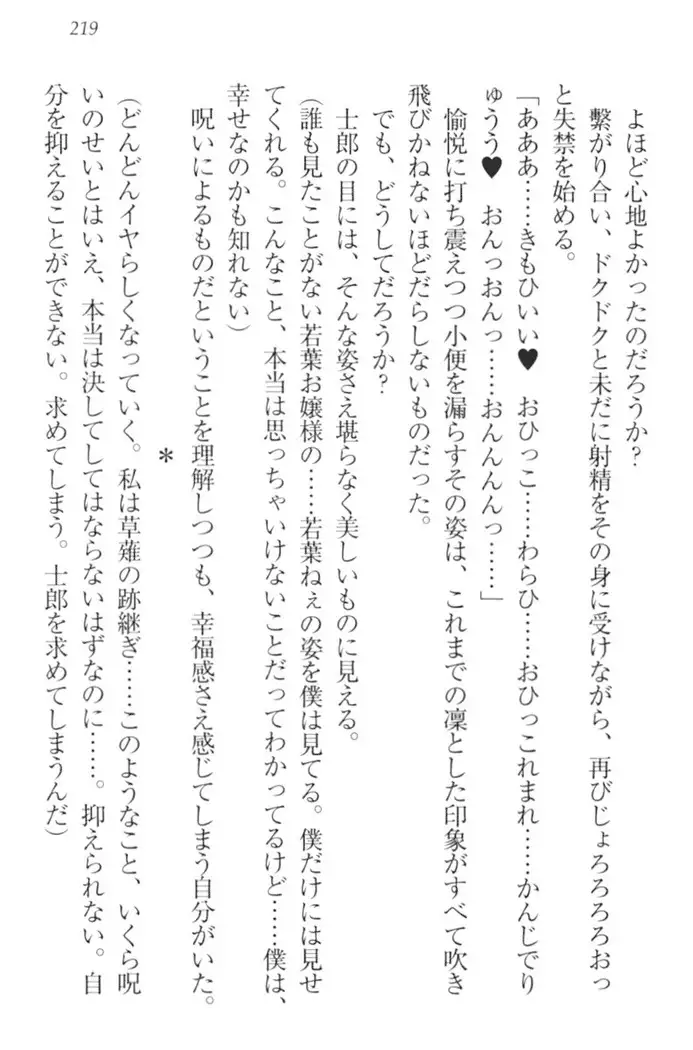 219
よほど心地よかったのだろうか？
繋がり合い、ドクドクと未だに射精をその身に受けながら、再びじょろろろろおっ
と失禁を始める。
「あああ……きもひいい♥　おひっこ……わらひ……おひっこれまれ……かんじでり
ゅうう♥　おんっおんっ……おんんんんっ……」
愉悦に打ち震えつつ小便を漏らすその姿は、これまでの凛とした印象がすべて吹き
飛びかねないほどだらしないものだった。
でも、どうしてだろうか？
士郎の目には、そんな姿さえ堪らなく美しいものに見える。
（誰も見たことがない若葉お嬢様の……若葉ねぇの姿を僕は見てる。僕だけには見せ
てくれる。こんなこと、本当は思っちゃいけないことだってわかってるけど……僕は、
幸せなのかも知れない）
呪いによるものだということを理解しつつも、幸福感さえ感じてしまう自分がいた。
＊
（どんどんイヤらしくなっていく。私は草薙の跡継ぎ……このようなこと、いくら呪
いのせいとはいえ、本当は決してしてはならないはずなのに……。抑えられない。自
分を抑えることができない。求めてしまう。士郎を求めてしまうんだ）